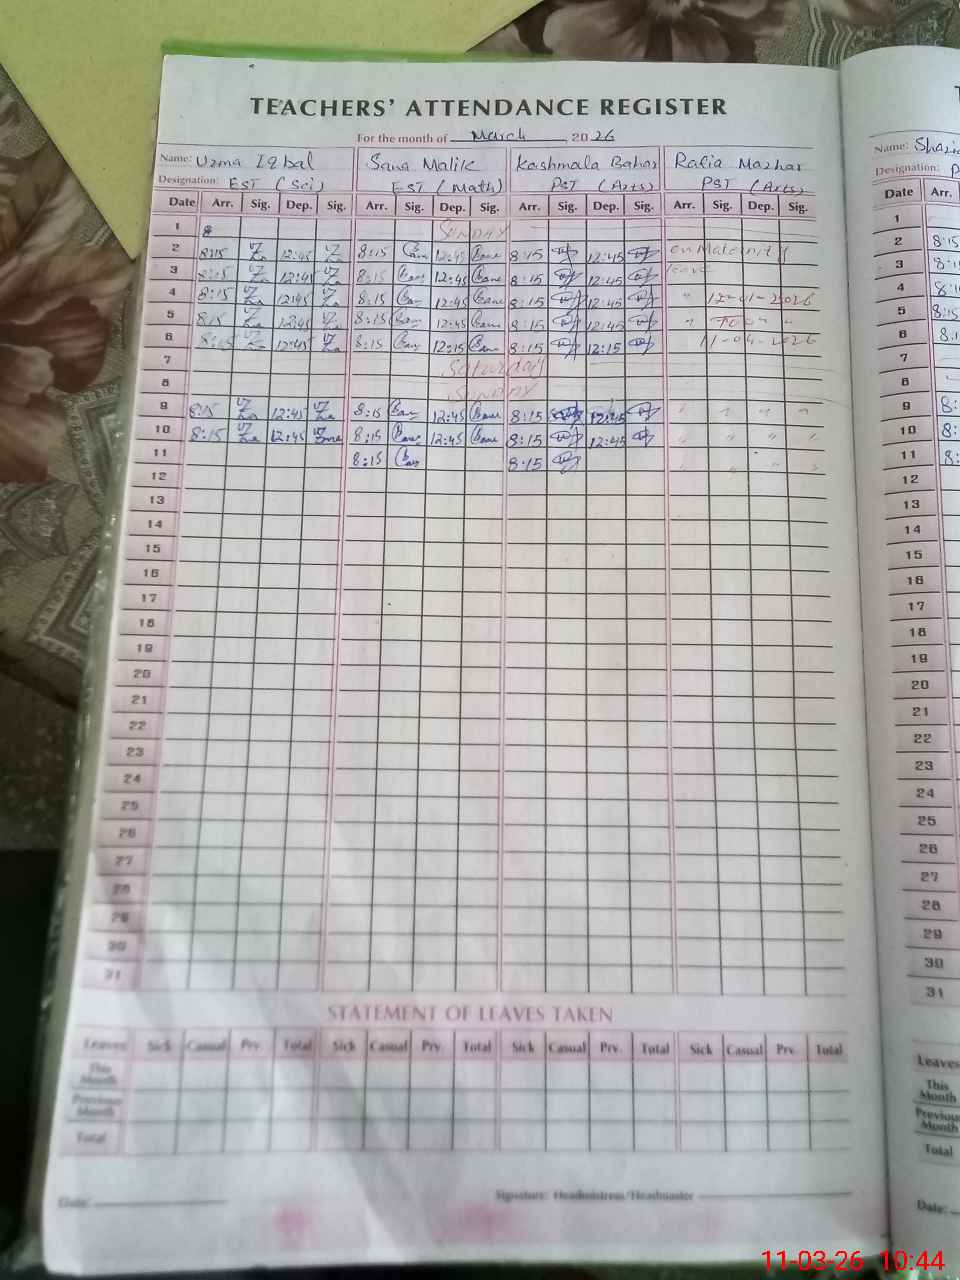 TEACHERS' ATTENDANCE REGISTER
For the month of March 2026
Name: Uzma Iqbal Sana Malik Kashmala Babar Rafia Mazhar
Designation: EST (Sci) EST (Math) PST (Arts) PST (Arts)
Date Arr. Sig. Dep. Sig. Arr. Sig. Dep. Sig. Arr. Sig. Dep. Sig. Arr. Sig. Dep. Sig.
1 SUNDAY
2 8:15 12:45 8:15 12:45 8:15 12:45 on Maternity
3 8:15 12:45 8:15 12:45 8:15 12:45 leave
4 8:15 12:45 8:15 12:45 8:15 12:45 " 12-01-2026
5 8:15 12:45 8:15 12:45 8:15 12:45 " To "
6 8:15 12:45 8:15 12:15 8:15 12:15 11-04-2026
7 Saturday
8 SUNDAY
9 8:15 12:45 8:15 12:45 8:15 12:45 " " " "
10 8:15 12:45 8:15 12:45 8:15 12:45 " " " "
11 8:15 8:15 " " " "
12
13
14
15
16
17
18
19
20
21
22
23
24
25
26
27
28
29
30
31
STATEMENT OF LEAVES TAKEN
Leaves Sick Casual Prv. Total Sick Casual Prv. Total Sick Casual Prv. Total Sick Casual Prv. Total
This Month
Previous Month
Total
Date:
Signature: Headmistress/Headmaster
Name:
Designation:
Date Arr.
1
2 8:15
3
4
5 8:15
6
7
8
9
10
11
12
13
14
15
16
17
18
19
20
21
22
23
24
25
26
27
28
29
30
31
Leaves
This Month
Previous Month
Total
Date:
11-03-26 10:44